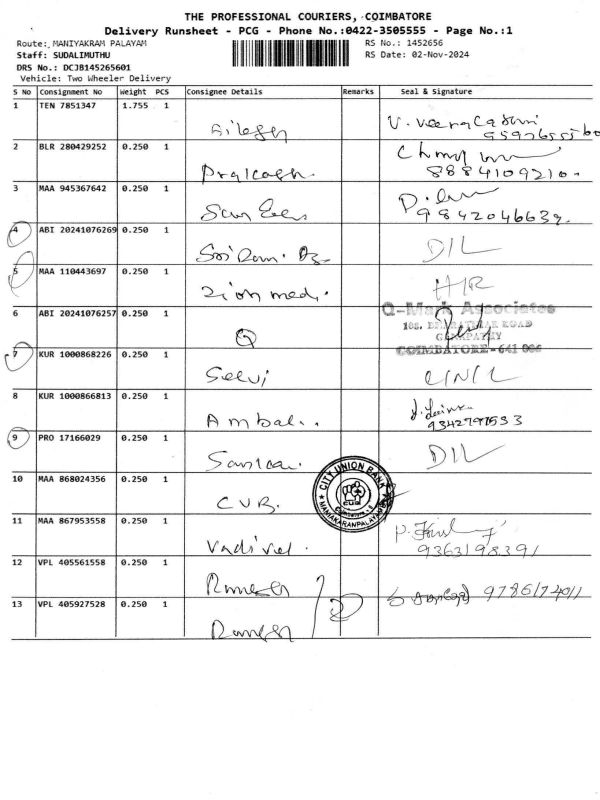 THE PROFESSIONAL COURIERS, COIMBATORE
Delivery Runsheet - PCG - Phone No.:0422-3505555 - Page No.:1
Route: MANIYAKRAM PALAYAM
RS No.: 1452656
Staff: SUDALIMUTHU
RS Date: 02-Nov-2024
DRS No.: DCJB145265601
Vehicle: Two Wheeler Delivery
S No Consignment No Weight PCS Consignee Details Remarks Seal & Signature
1 TEN 7851347 1.755 1
2 BLR 280429252 0.250 1 8884109210
3 MAA 945367642 0.250 1 9842046639
4 ABI 20241076269 0.250 1 DIL
5 MAA 110443697 0.250 1 Zion medi. HR
6 ABI 20241076257 0.250 1 Q Q-Mark Associates
ROAD
COIMBATORE - 641 006
7 KUR 1000868226 0.250 1 Selvi
8 KUR 1000866813 0.250 1 Ambal
9 PRO 17166029 0.250 1 DIL
10 MAA 868024356 0.250 1 CUB. CITY UNION BANK CUB MANIAKARANPALAYAM
11 MAA 867953558 0.250 1 Vadivel. 9363198391
12 VPL 405561558 0.250 1 Ramesh 9786174011
13 VPL 405927528 0.250 1 Ramesh